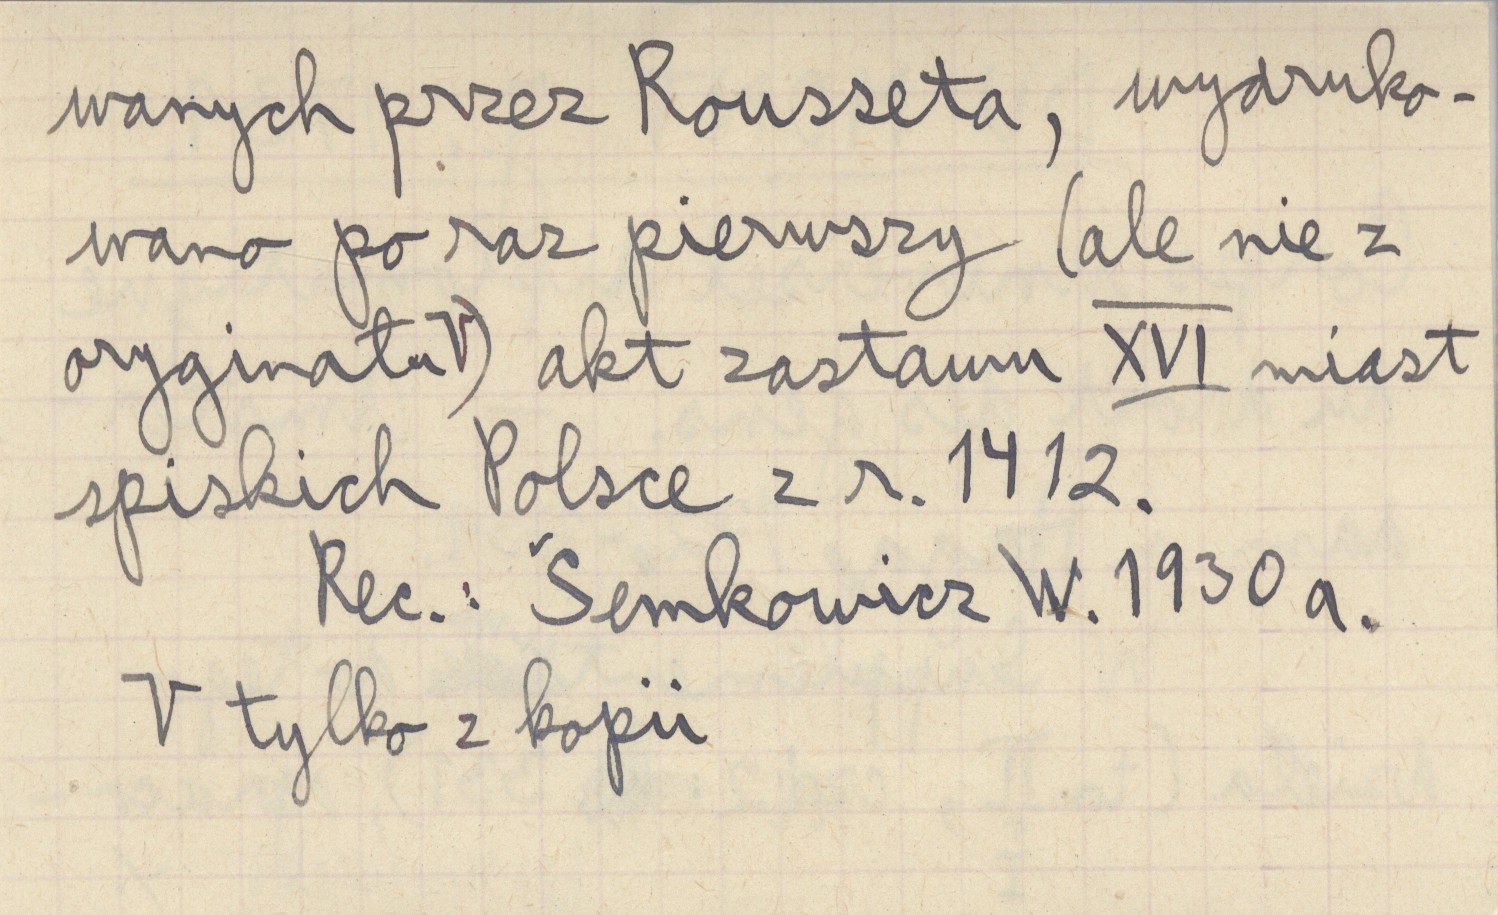 wanych przez Rousseta, wydruko-
wano po raz pierwszy (ale nie z
oryginału V) akt zastawu XVI miast
spiskich Polsce z r. 1412.
Rec.: Semkowicz W. 1930 a.
V tylko z kopii